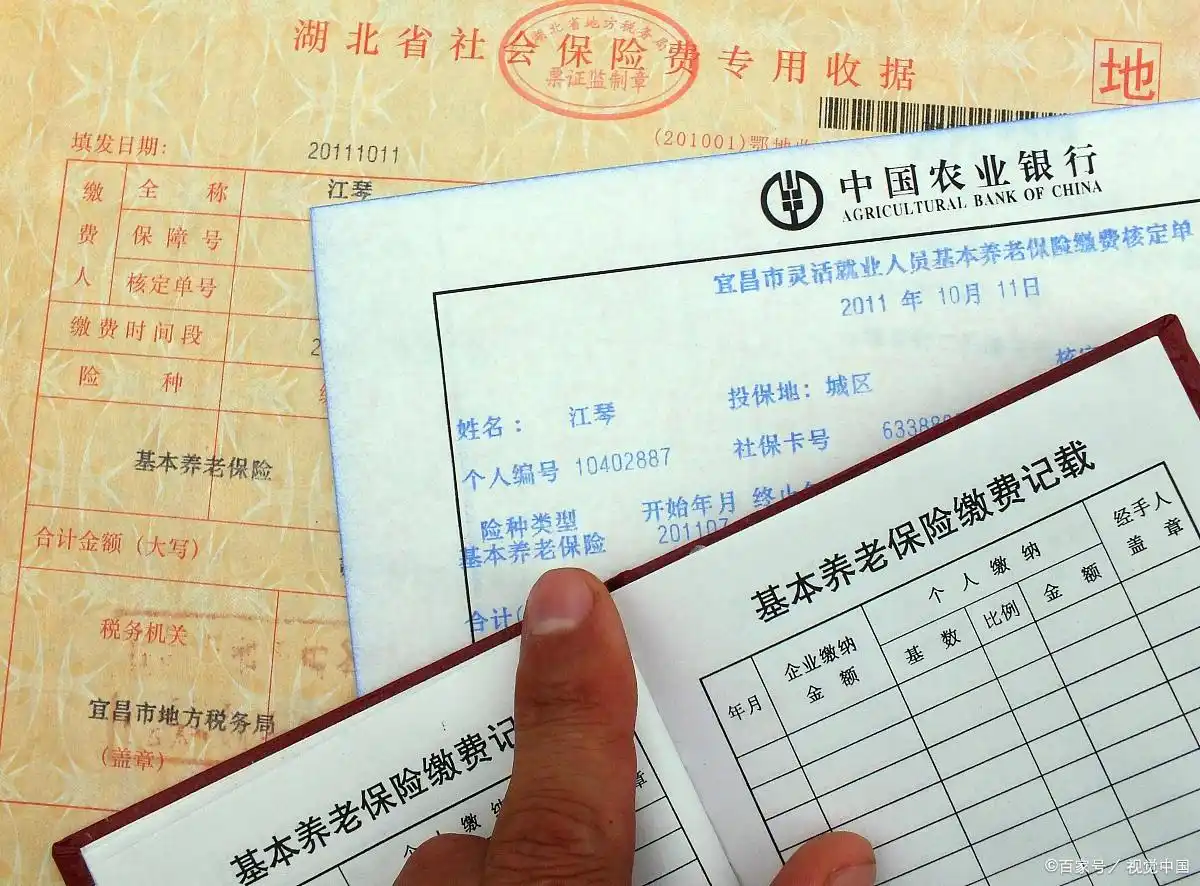 湖北省社会保险费专用收据
湖北省地方税务局
票证监制章
地
填发日期: 20111011
(201001)鄂地
缴费人
全称 江琴
保障号
核定单号
缴费时间段
险种
基本养老保险
合计金额（大写）
税务机关
宜昌市地方税务局
（盖章）
中国农业银行
AGRICULTURAL BANK OF CHINA
宜昌市灵活就业人员基本养老保险缴费核定单
2011 年 10月 11日
姓名： 江琴 投保地：城区
个人编号 10402887 社保卡号 63388
险种类型 开始年月
基本养老保险 201107
合计
基本养老保险缴费记载
年月 企业缴纳金额 个人缴纳 经手人盖章
基数 比例 金额
基本养老保险缴费记
章
©百家号／视觉中国